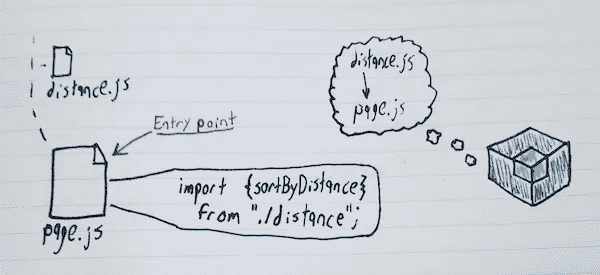 distance.js
Entry point
page.js
import {sortByDistance}
from "./distance";
distance.js
page.js